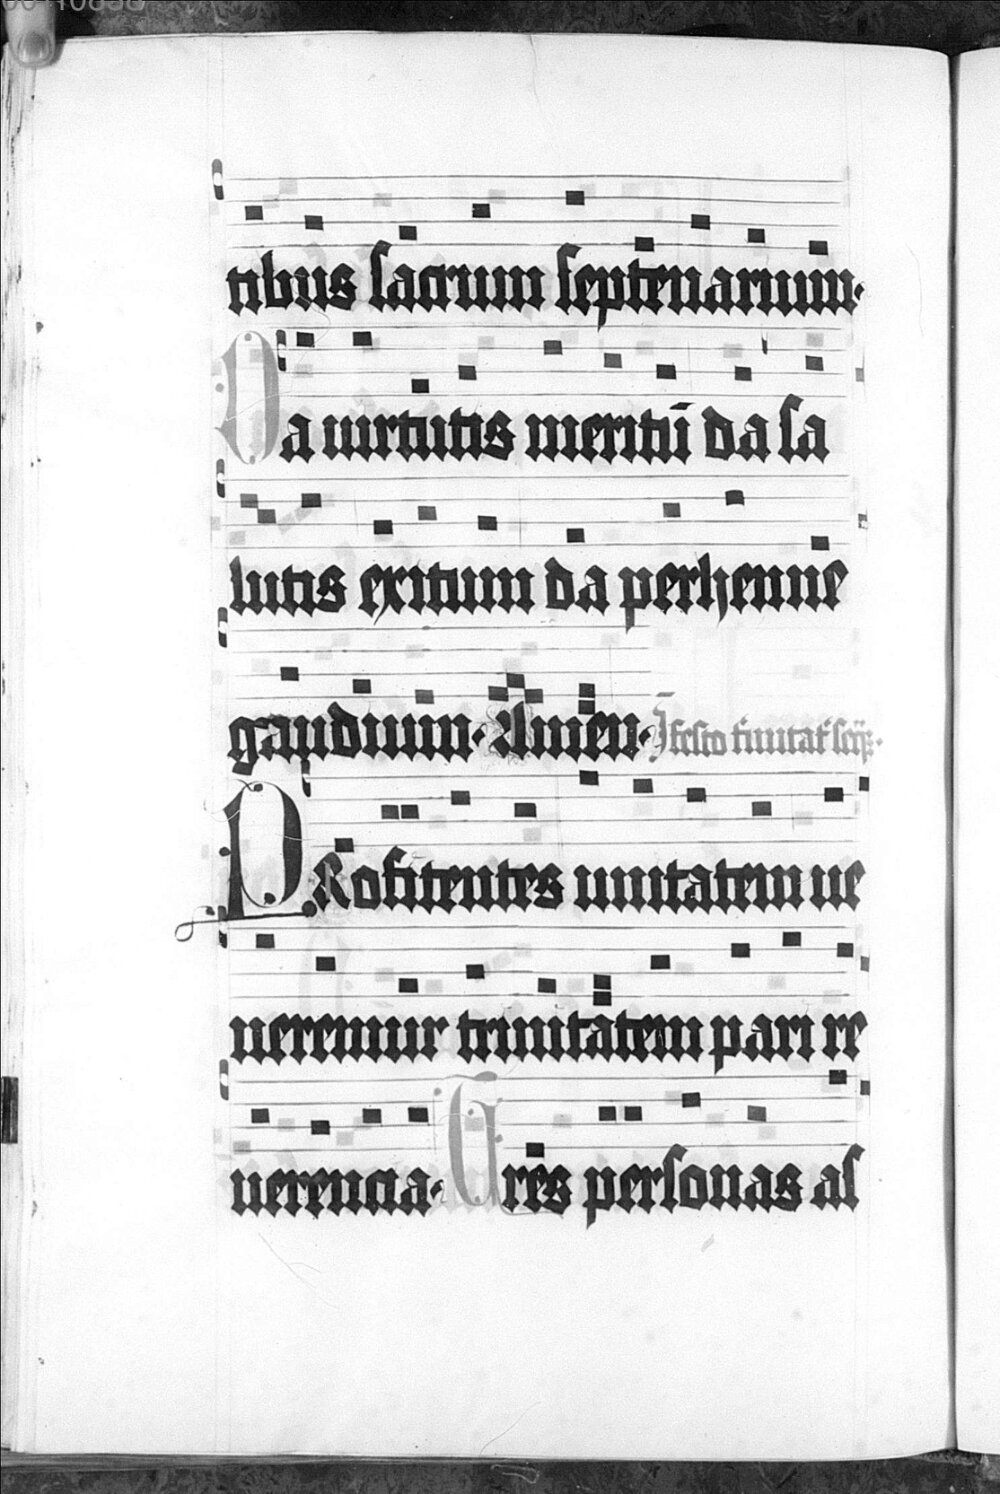 tibus sacrum septenarium.
Da uirtutis meritū da sa
lutis exitum da perhenne
gaudium. Amen. I festo tinitat seq̄.
PRofitentes unitatem ue
neremur trinitatem pari re
uerencia. Tres personas as